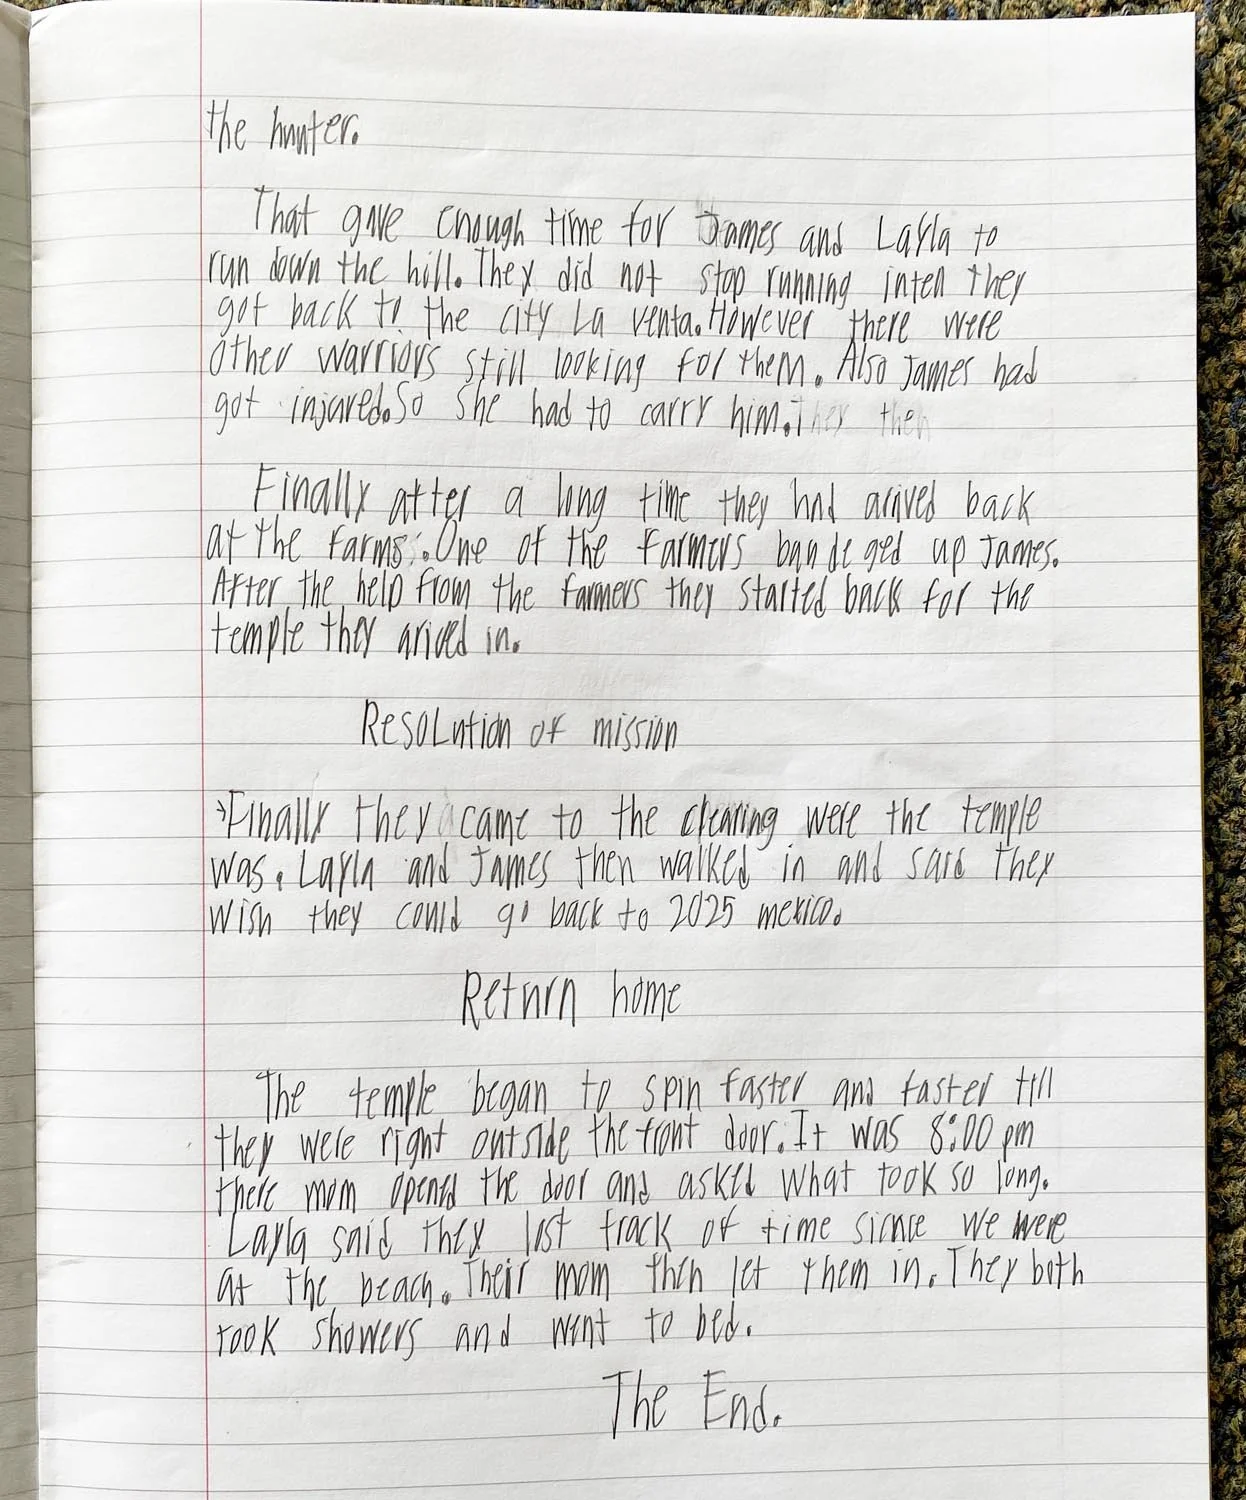 the hunter.
That gave enough time for James and Layla to
run down the hill. They did not stop running inten they
got back to the city La venta. However there were
other warriors still looking for them. Also James had
got injured. So she had to carry him. They then
Finally after a long time they had arived back
at the farms. One of the farmers bandeged up James.
After the help from the farmers they started back for the
temple they arived in.
Resolution of mission
Finally they came to the clearing were the temple
was. Layla and James then walked in and said they
wish they could go back to 2025 mexico.
Return home
The temple began to spin faster and faster till
they were right outside the front door. It was 8:00 pm
there mom opened the door and asked what took so long.
Layla said they lost track of time sicnce we were
at the beach. Their mom then let them in. They both
took showers and went to bed.
The End.